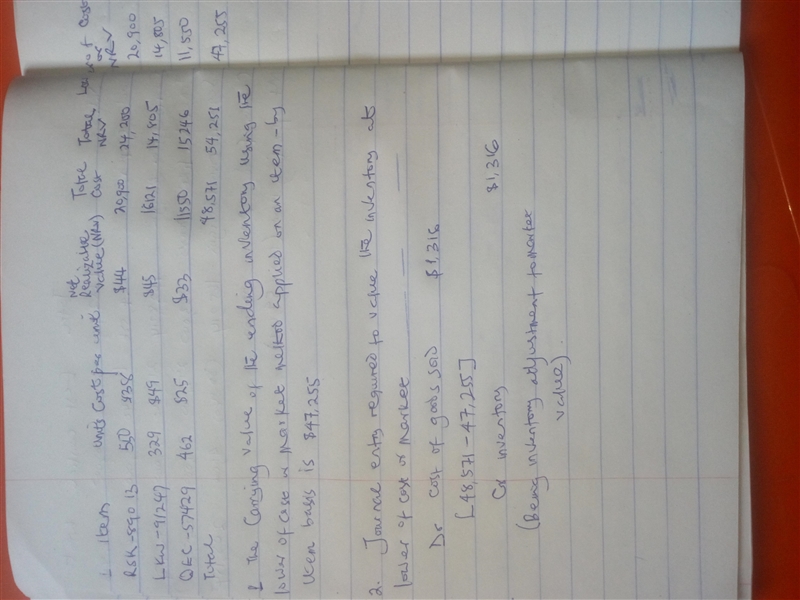 1 Item Units Cost per unit Net Realizable Value (NRV) Total Cost Total NRV Lower of Cost or NRV
RSK-89013 550 $38 $44 20,900 24,200 20,900
LKW-91247 329 $49 $45 16121 14,805 14,805
QEC-57429 462 $25 $33 11550 15246 11,550
Total 48,571 54,251 47,255
1 The Carrying value of the ending inventory using the
lower of cost or market method applied on an item-by
item basis is $47,255
2. Journal entry required to value the inventory at
lower of cost or market
Dr cost of goods sold $1,316
[48,571 - 47,255]
Cr inventory $1,316
(Being inventory adjustment to market
value)